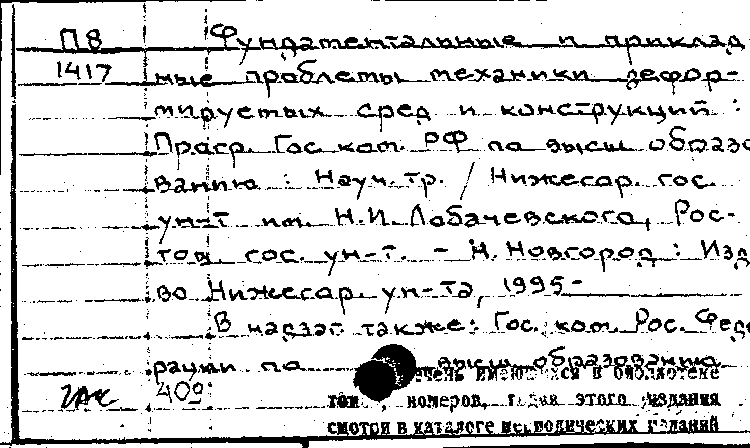 П8 Фундаментальные и приклад
1417 ные проблемы механики дефор-
мируемых сред и конструкций :
Прогр. Гос. ком. РФ по высш образо
ванию : Науч. тр. / Нижегор. гос.
ун-т им. Н.И. Лобачевского, Рос-
тов. гос. ун-т. - Н. Новгород : Изд
во Нижегор. ун-та, 1995-
В надзаг также: Гос. ком. Рос. Феде
рации по высш образованию
40º
в библиотеке
номеров, этого издания
смотри в каталоге периодических изданий